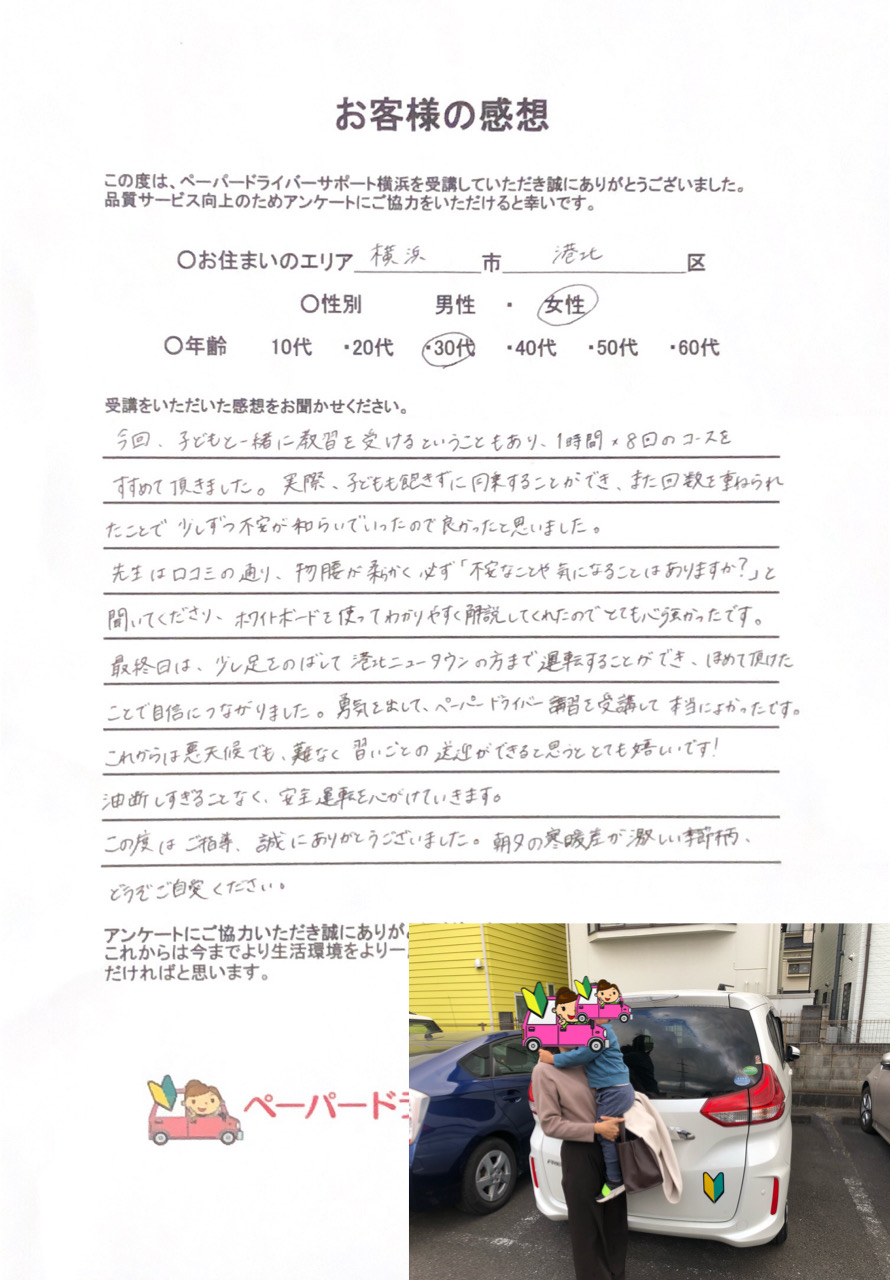 お客様の感想
この度は、ペーパードライバーサポート横浜を受講していただき誠にありがとうございました。
品質サービス向上のためアンケートにご協力をいただけると幸いです。
〇お住まいのエリア 横浜 市 港北 区
〇性別 男性 ・ 女性
〇年齢 10代 ・20代 ・30代 ・40代 ・50代 ・60代
受講をいただいた感想をお聞かせください。
今回、子どもと一緒に教習を受けるということもあり、1時間×8回のコースを
すすめて頂きました。実際、子どもも飽きずに同乗することができ、また回数を重ねられ
たことで少しずつ不安が和らいでいったので良かったと思いました。
先生は口コミの通り、物腰が柔らかく必ず「不安なことや気になることはありますか?」と
聞いてくださり、ホワイトボードを使ってわかりやすく解説してくれたのでとても心強かったです。
最終日は、少し足をのばして港北ニュータウンの方まで運転することができ、ほめて頂けた
ことで自信につながりました。勇気を出して、ペーパードライバー講習を受講して本当によかったです。
これからは悪天候でも、難なく習いごとの送迎ができると思うととても嬉しいです!
油断しすぎることなく、安全運転を心がけていきます。
この度はご指導、誠にありがとうございました。朝夕の寒暖差が激しい季節柄、
どうぞご自愛ください。
アンケートにご協力いただき誠にありが
これからは今までより生活環境をより一
だければと思います。
ペーパード